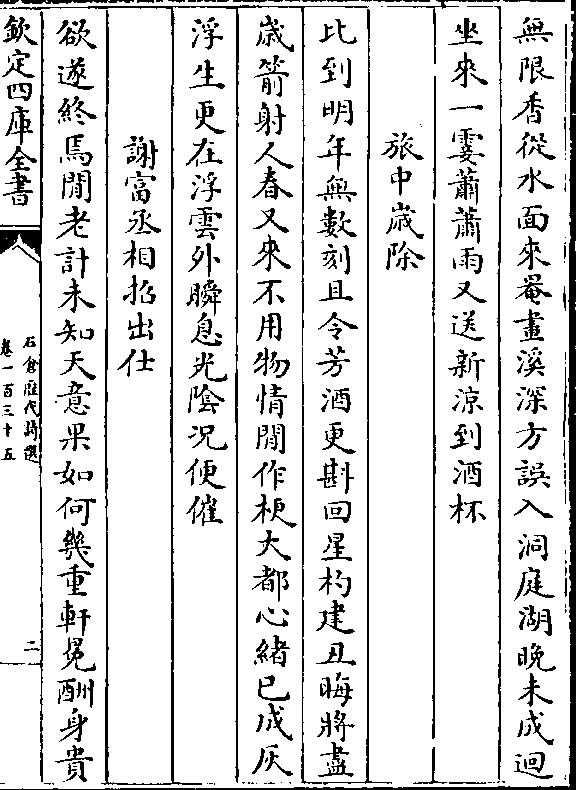 無限香從水面來罨畫溪深方誤入洞庭湖晚未成迴
坐來一霎蕭蕭雨又送新涼到酒杯
旅中歲除
比到明年無數刻且令芳酒更斟回星杓建丑晦將盡
歲箭射人春又來不用物情閒作梗大都心緒已成灰
浮生更在浮雲外瞬息光陰况便催
謝富丞相招出仕
欲遂終焉閒老計未知天意果如何幾重軒冕酬身貴
欽定四庫全書
石倉歷代詩選
卷一百三十五
二